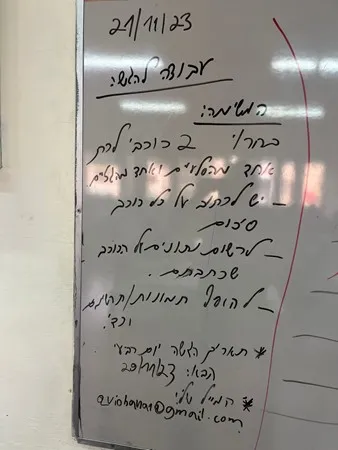 21/11/23
עבודה להגשה:
המשימה:
בחר/י 2 כוכבי לכת
אחד מהסלעיים ואחד מהגזיים.
- יש לכתוב על כל כוכב
סיכום
- לרשום נתונים על הכוכב
שכתבתם.
- להוסיף תמונות/תרשימים
וכד'.
* תאריך הגשה יום רביעי
הבא: 29/11/23
* המייל שלי:
@gmail.com